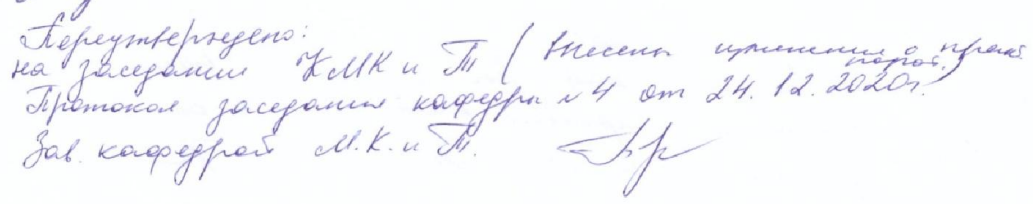 Переутверждено:
на заседании КМК и Т (Внесены изменения о практ.
Протокол заседания кафедры №4 от 24.12.2020г.
Зав. кафедрой М.К. и Т.